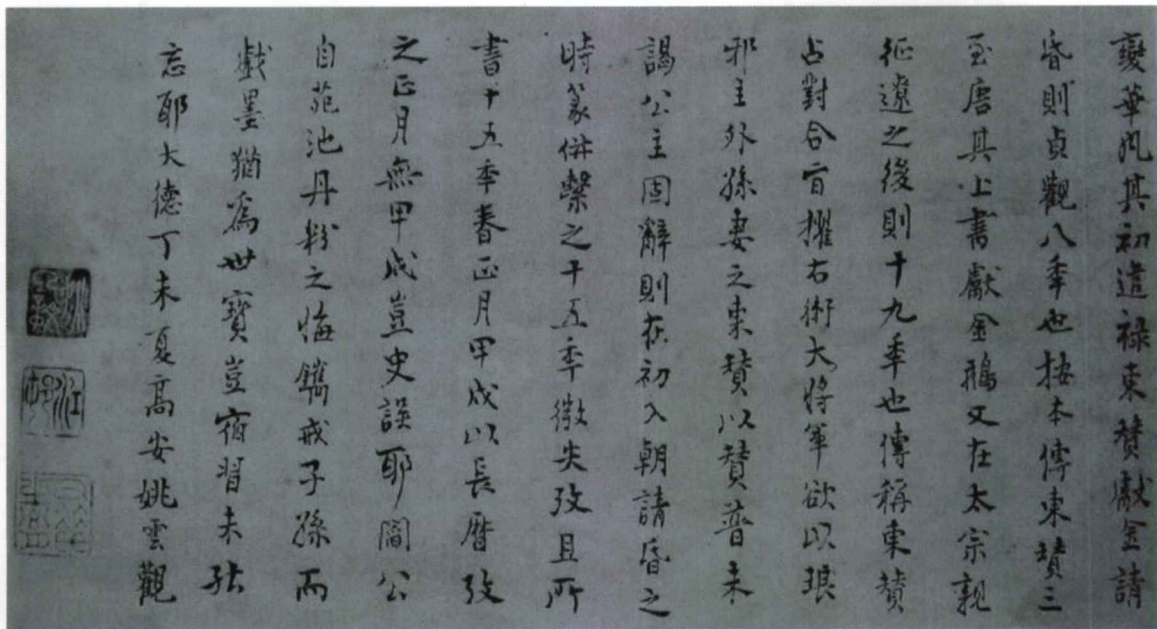 變華風其初遣祿東贊獻金請
昏則貞觀八年也按本傳東贊三
至唐其上書獻金鵝又在太宗親
征遼之後則十九年也傳稱東贊
占對合旨擢右衛大將軍欲以琅
邪主外孫妻之東贊以贊普未
謁公主固辭則在初入朝請昏之
時篆併繫之十五季微失攷且所
書十五季春正月甲戌以長曆攷
之正月無甲戌豈史誤耶閻公
自苑池丹粉之悔鐫戒子孫而
戲墨猶為世寶豈宿習未能
忘耶大德丁未夏高安姚雲觀